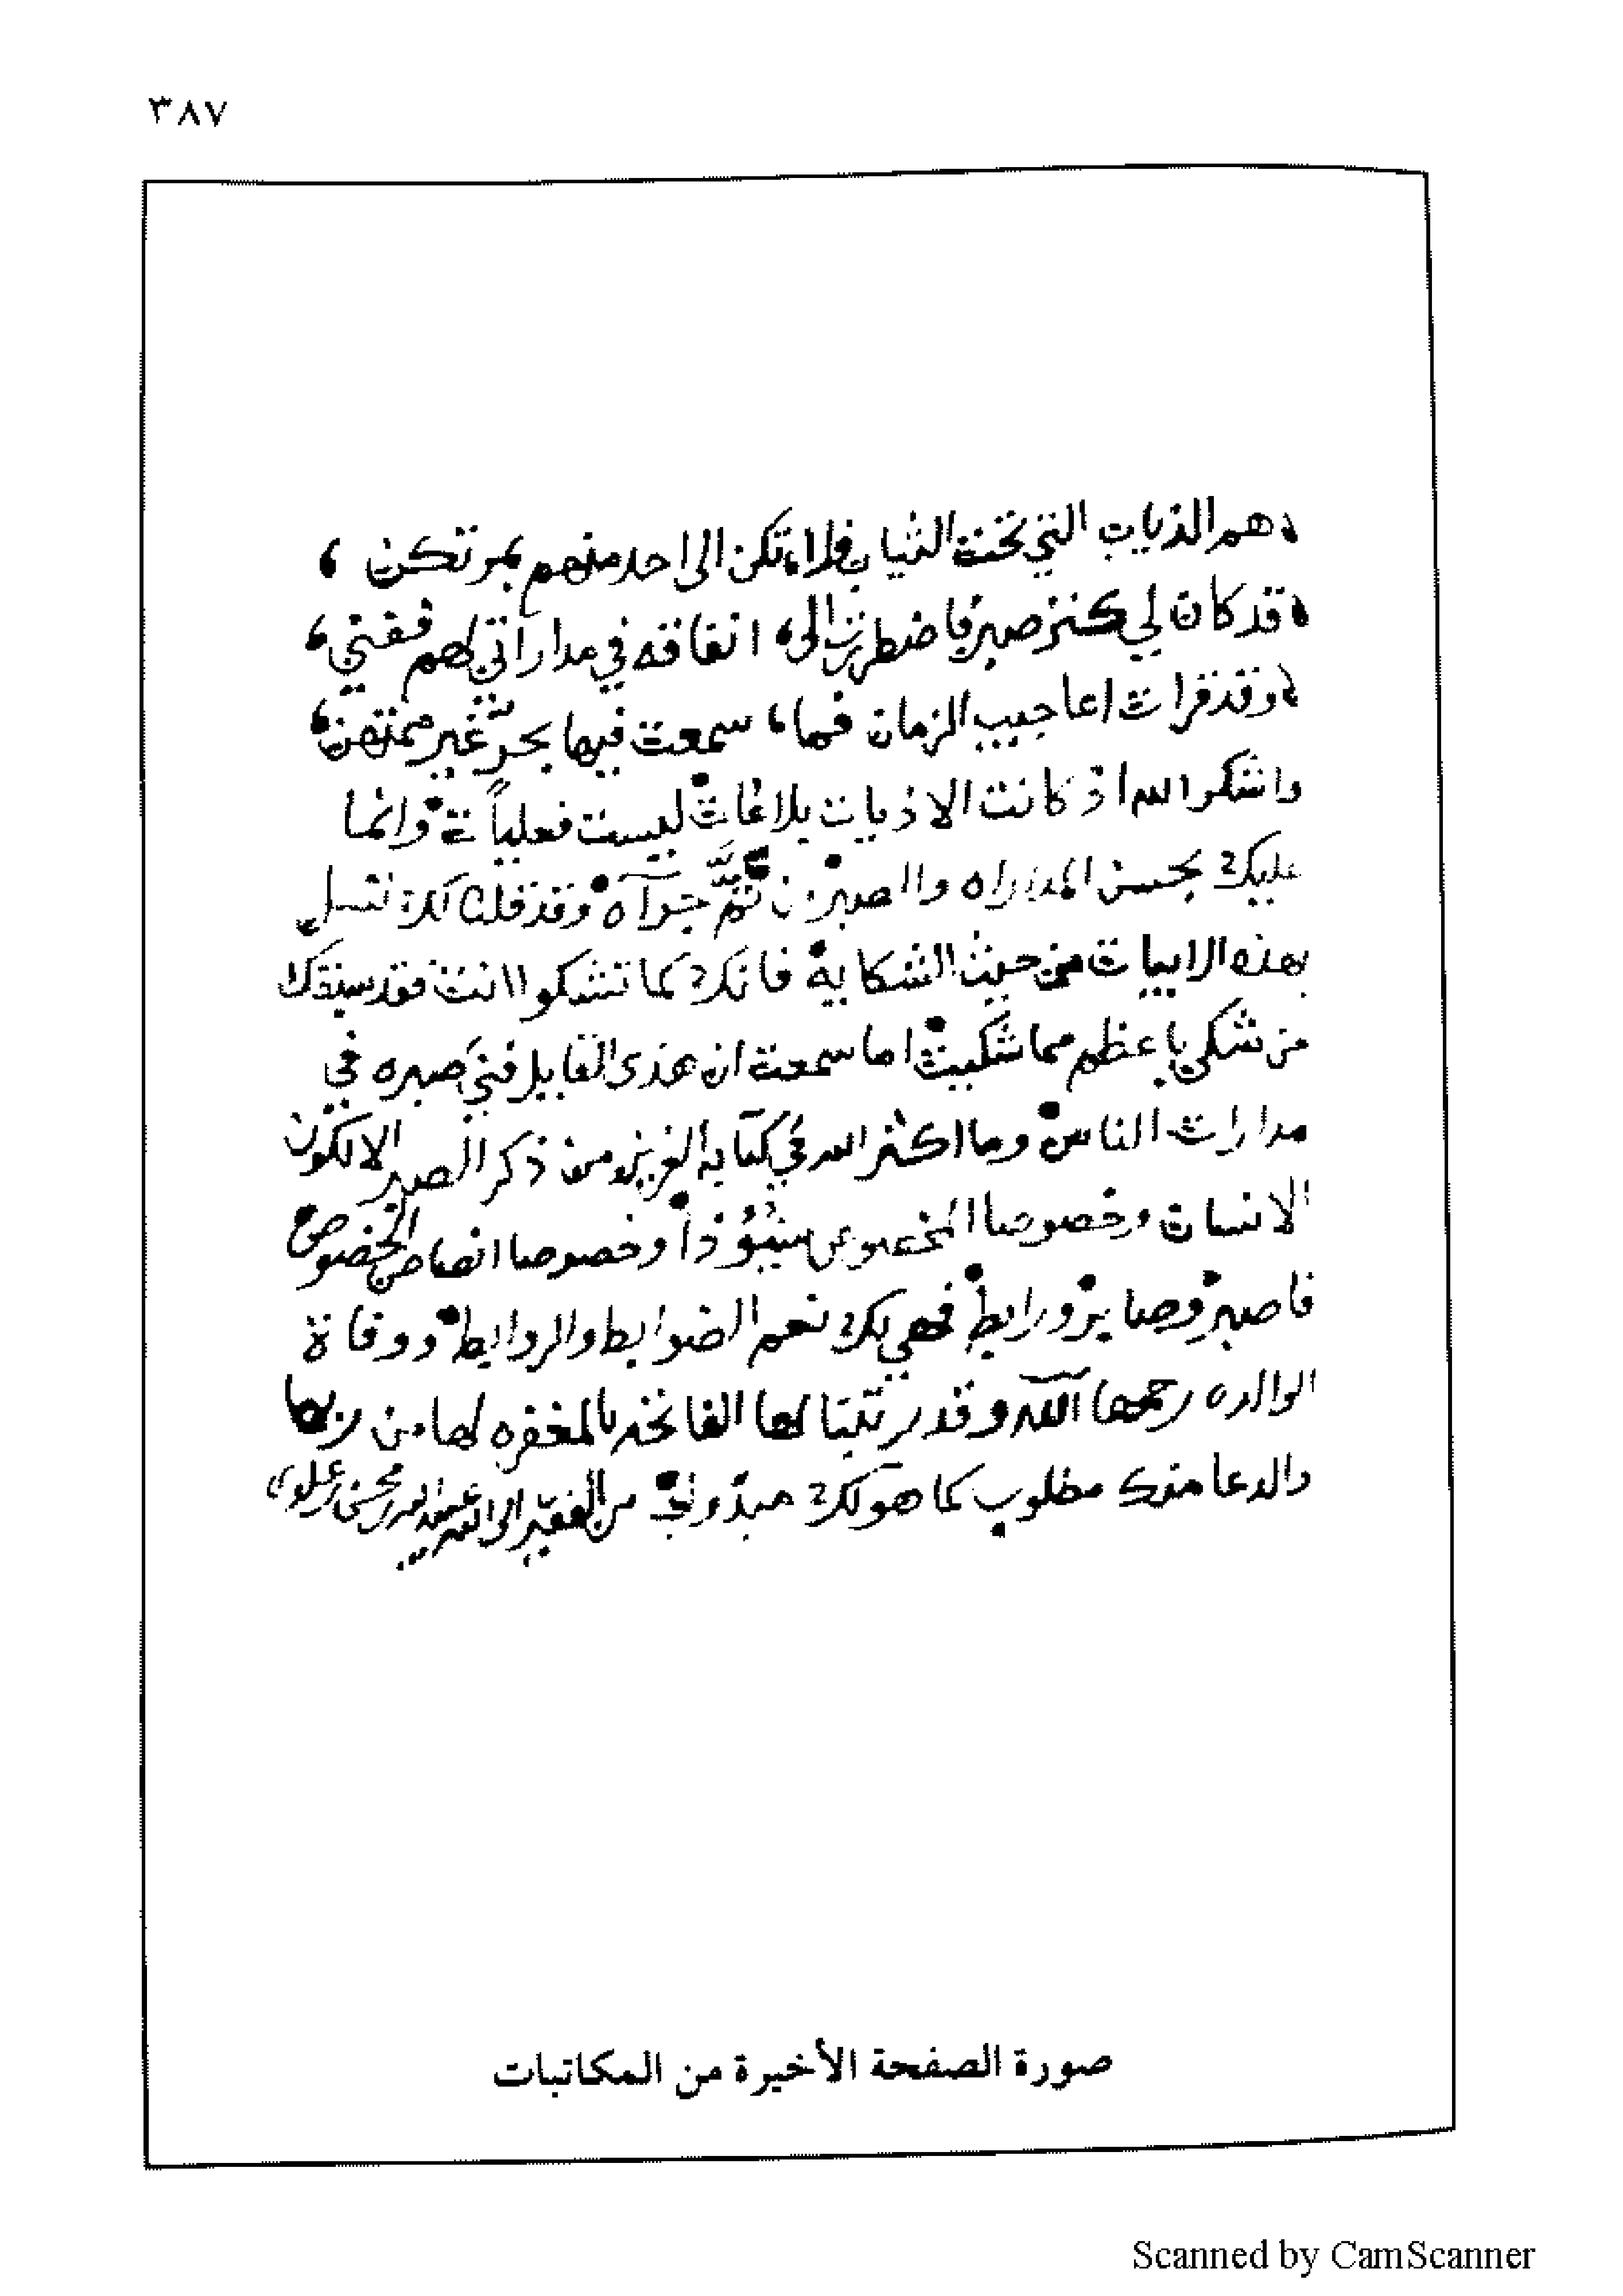 ٣٨٧
هم الذياب التي تحت الثياب فلا، تكن الى احد منهم بمرتكن،
قد كان لي كنز صبر فاضطررت الى، انفاقه في مداراتي لهم ففني،
وقد قرات اعاجيب الزمان فما، سمعت فيها بحر غير ممتهن،
واشكر الله اذ كانت الاذيات بلاغات ليست فعليات وانما
عليك بحسن المداراه والصبر
بهذه الابيات من حيث الشكاية فانك كما تشكوا انت فقد سبقك
من شكى باعظم مما شكيت اما سمعت ان هذى القايل فني صبره في
مدارات الناس وما اكثر الله في كتابه العزيز من ذكر الصبر الا لكون
الانسان وخصوصا الخصوص وخصوصا الخصوص
فاصبر وصابر ورابط فهي لك نعم الضوابط والروابط ووفاة
الوالده رحمها الله وقد رتبنا لها الفاتحه بالمغفره لها من ربها
والدعا منك مطلوب كما هو لك مبذول من الفقير الى الله عبدالله بن محسن بن علوي
صورة الصفحة الأخيرة من المكاتبات
Scanned by CamScanner